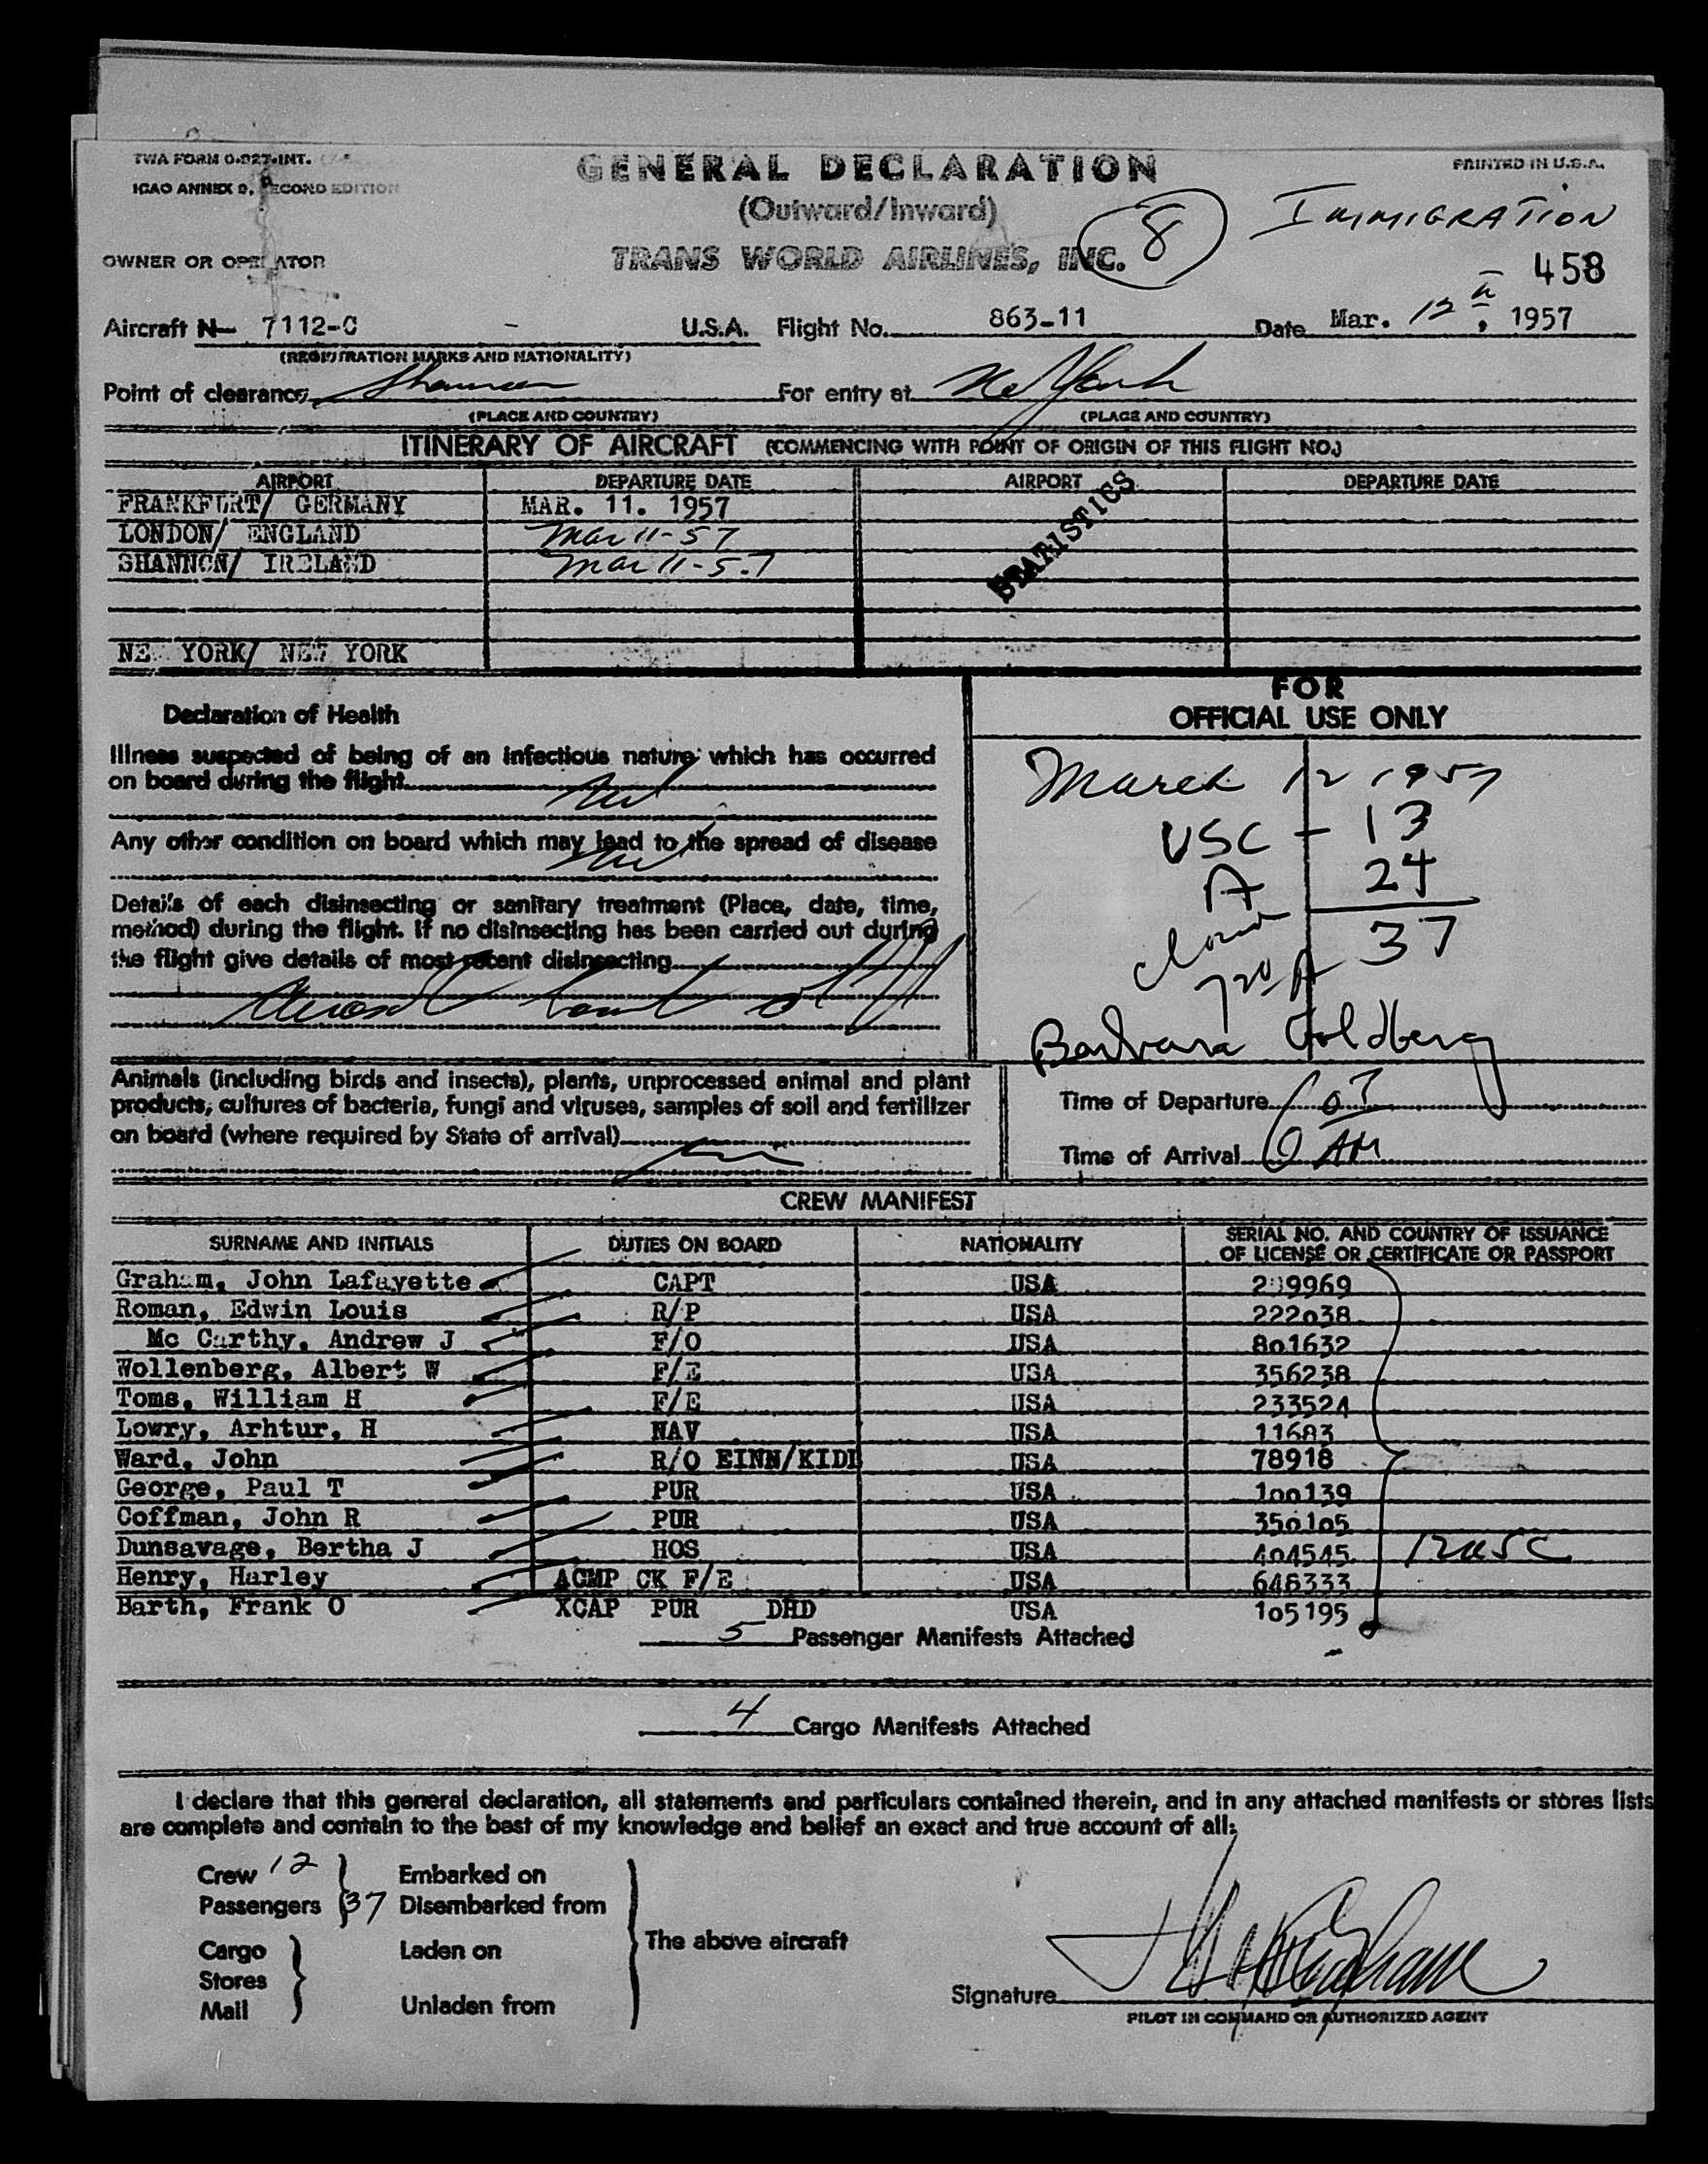 TWA FORM O-927-INT.
PRINTED IN U.S.A.
ICAO ANNEX 9, SECOND EDITION
GENERAL DECLARATION
(Outward/Inward)
8
IMMIGRATION
OWNER OR OPERATOR
TRANS WORLD AIRLINES, INC.
458
Aircraft N- 7112-C - U.S.A. Flight No. 863-11 Date Mar. 12, 1957
(REGISTRATION MARKS AND NATIONALITY)
Point of clearance Shannon For entry at New York
(PLACE AND COUNTRY) (PLACE AND COUNTRY)
ITINERARY OF AIRCRAFT (COMMENCING WITH POINT OF ORIGIN OF THIS FLIGHT NO.)
AIRPORT DEPARTURE DATE AIRPORT DEPARTURE DATE
FRANKFURT/ GERMANY MAR. 11. 1957
LONDON/ ENGLAND Mar 11-57
SHANNON/ IRELAND Mar 11-57
STATISTICS
NEW YORK/ NEW YORK
Declaration of Health
Illness suspected of being of an infectious nature which has occurred
on board during the flight
Any other condition on board which may lead to the spread of disease
Details of each disinsecting or sanitary treatment (Place, date, time,
method) during the flight. If no disinsecting has been carried out during
the flight give details of most recent disinsecting
FOR
OFFICIAL USE ONLY
March 12 1957
USC - 13
A 24
37
Barbara Goldberg
Animals (including birds and insects), plants, unprocessed animal and plant
products, cultures of bacteria, fungi and viruses, samples of soil and fertilizer
on board (where required by State of arrival)
Time of Departure
Time of Arrival AM
CREW MANIFEST
SURNAME AND INITIALS DUTIES ON BOARD NATIONALITY SERIAL NO. AND COUNTRY OF ISSUANCE
OF LICENSE OR CERTIFICATE OR PASSPORT
Graham, John Lafayette CAPT USA
Roman, Edwin Louis R/P USA 222038
Mc Carthy, Andrew J F/O USA 801632
Wollenberg, Albert W F/E USA 356238
Toms, William H F/E USA 233524
Lowry, Arhtur, H NAV USA 11683
Ward, John R/O EINN/KIDL USA 78918
George, Paul T PUR USA 100139
Coffman, John R PUR USA 350105
Dunsavage, Bertha J HOS USA 404545 12 USC
Henry, Harley ACMP CK F/E USA 648333
Barth, Frank O XCAP PUR DHD USA 105195
5 Passenger Manifests Attached
4 Cargo Manifests Attached
I declare that this general declaration, all statements and particulars contained therein, and in any attached manifests or stores lists
are complete and contain to the best of my knowledge and belief an exact and true account of all:
Crew 12 Embarked on
Passengers 37 Disembarked from
Cargo Laden on
The above aircraft
Stores
Mail Unladen from
Signature
PILOT IN COMMAND OR AUTHORIZED AGENT